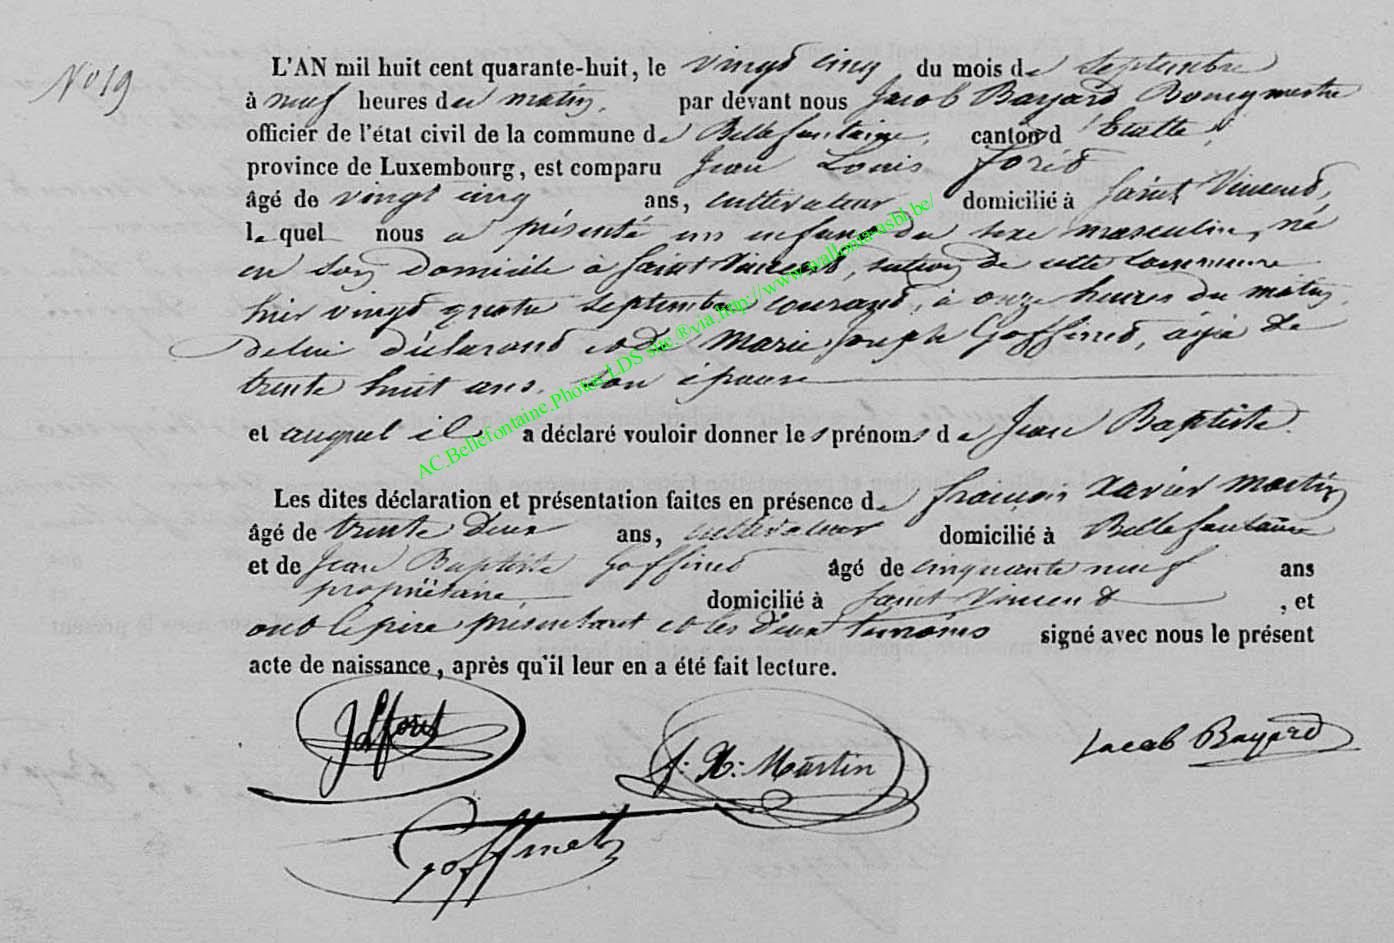 N° 19
L'AN mil huit cent quarante-huit, le vingt cinq du mois de Septembre
à neuf heures du matin, par devant nous Jacob Bayard Bourgmestre
officier de l'état civil de la commune de Bellefontaine, canton d'Etalle,
province de Luxembourg, est comparu Jean Louis Foret
âgé de vingt cinq ans, cultivateur domicilié à Saint Vincent,
lequel nous a présenté un enfant du sexe masculin, né
en son domicile à Saint Vincent, section de cette commune
hier vingt quatre Septembre courant, à onze heures du matin,
de lui déclarant et de Marie Joseph Goffinet, âgée de
trente huit ans, son épouse
et auquel il a déclaré vouloir donner les prénoms de Jean Baptiste.
Les dites déclaration et présentation faites en présence de François Xavier Martin
âgé de trente deux ans, cultivateur domicilié à Bellefontaine
et de Jean Baptiste Goffinet âgé de cinquante neuf ans
propriétaire, domicilié à Saint Vincent, et
ont le père présentant et les deux témoins signé avec nous le présent
acte de naissance, après qu'il leur en a été fait lecture.
f. X: Martin Jacob Bayard
Goffinet
AC.Bellefontaine.Photos LDS site.®via.http://www.wallonia-asbl.be/